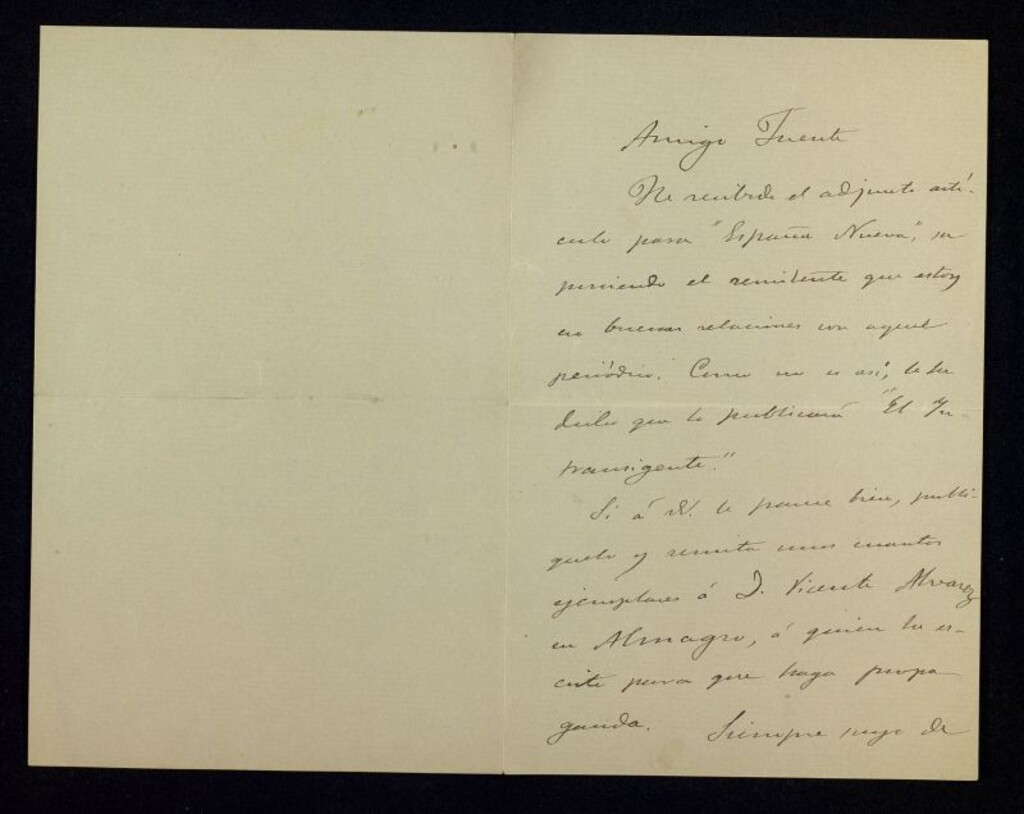 Amigo Fuente
He recibido el adjunto artí-
culo para "España Nueva", su
poniendo el remitente que estoy
en buenas relaciones con aquel
periódico. Como no es así, le he
dicho que lo publicará "El In-
transigente."
Si á V. le parece bien, publí-
quelo y remita unos cuantos
ejemplares á D. Vicente Alvarez
en Almagro, á quien he es-
crito para que haga propa
ganda. Siempre suyo de